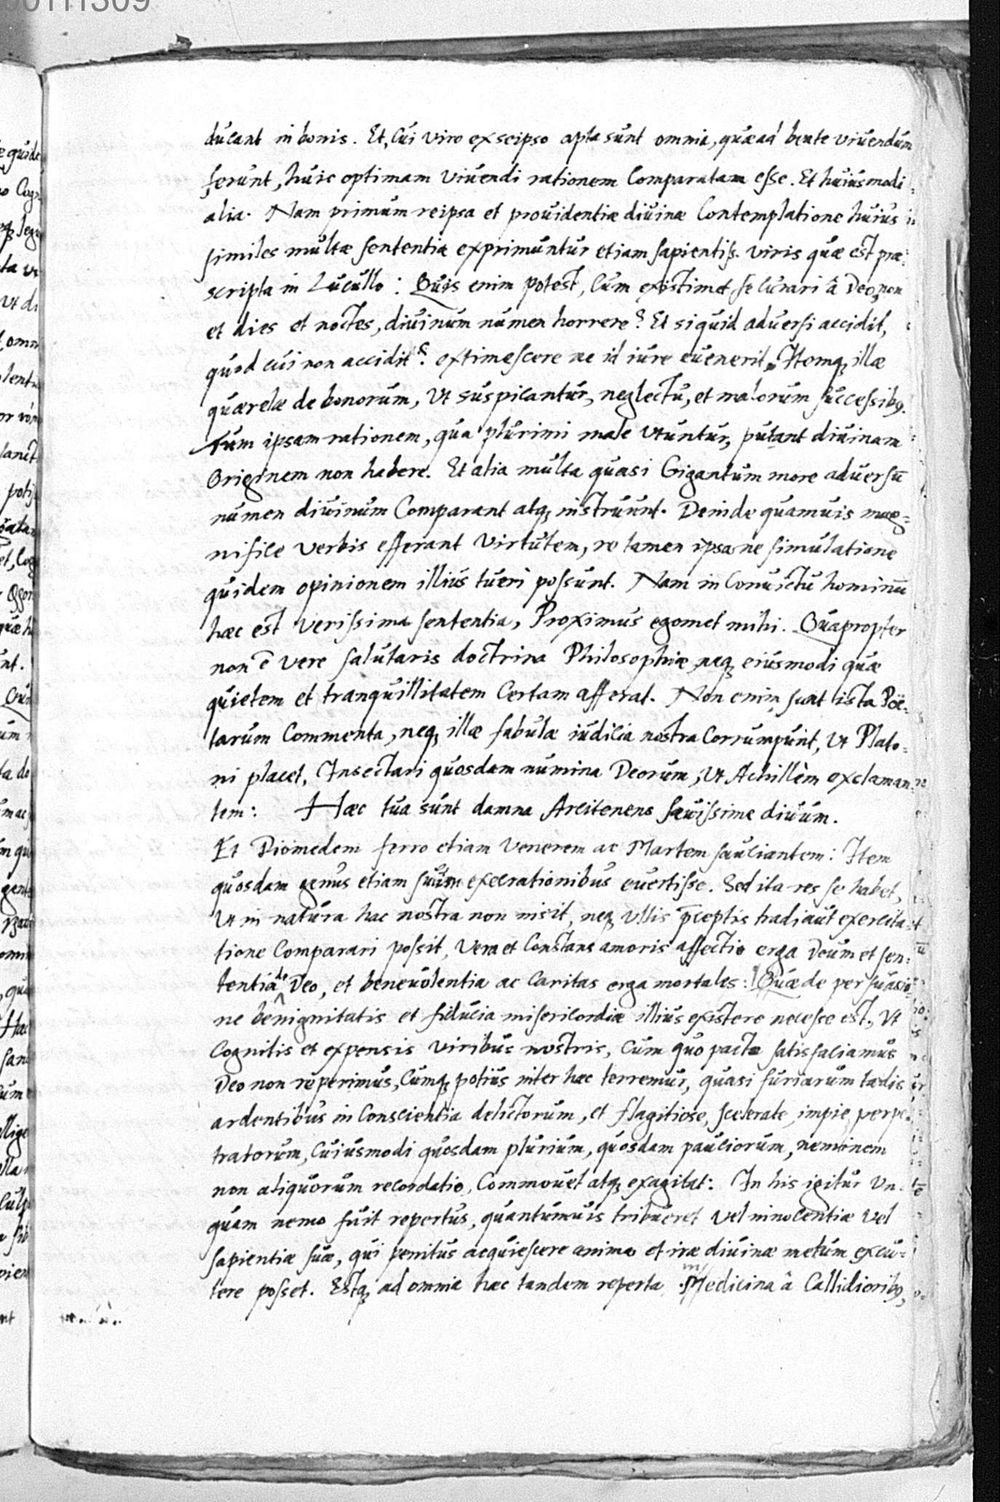 00111309
ducant in bonis. Et, Cui viro ex seipso apta sunt omnia, quæ ad beate viuendum
ferunt, huic optimam viuendi rationem Comparatam esse. Et huiusmodi
alia. Nam primum reipsa et prouidentiæ diuinæ Contemplatione huius
similes multæ sententiæ exprimuntur etiam sapientiss. viris quæ est præ:
scripta in Lucullo: Quis enim potest, Cum existimet se Curari â Deo, non
et dies et noctes, diuinum numen horrere? Et si quid aduersi accidit,
quod cui non accidit? extimescere ne id iure euenerit. Itemq, illæ
quærelæ de bonorum, Vt suspicantur, neglectu, et malorum successibq.
Tum ipsam rationem, qua plurimi male vtuntur, putant diuinam
Originem non habere. Et alia multa quasi Gigantum more aduersū
numen diuinum Comparant atq, instruunt. Deinde quamuis mag=
nifice verbis efferant Virtutem, re tamen ipsa ne simulatione
quidem opinionem illius tueri possunt. Nam in Conuictu hominū
hæc est verissima sententia, Proximus egomet mihi. Quapropter
non ē vere salutaris doctrina Philosophiæ neq, eiusmodi quæ
quietem et tranquillitatem Certam afferat. Non enim sunt ista Poë-
tarum Commenta, neq, illæ fabulæ iudicia nostra Corrumpunt, Vt Plato-
ni placet, Insectari quosdam numina Deorum, Vt Achillem exclaman
tem: Hæc tua sunt damna Arcitenens sæuissime diuum.
Et Diomedem ferro etiam Venerem ac Martem sauciantem: Item
quosdam genus etiam suum execrationibus euertisse. Sed ita res se habet,
Vt in natura hac nostra non nisit, neq, Vllis p̄ceptis tradi aut exercita-
tione Comparari possit, Vera et Constans amoris affectio erga Deum et sen-
tentia de Deo, et beneuolentia ac Caritas erga mortales: Quæ de persuasio
ne benignitatis et fiducia misericordiæ illius existere necesse est, Vt
Cognitis et expensis viribus nostris, Cum quo pacto satisfaciamus
Deo non reperimus, Cumq, potius inter hæc terremur, quasi furiarum tædis
ardentibus in Conscientia delictorum, et flagitiose, scelerate, impie, perpe
tratorum, Cuiusmodi quosdam plurium, quosdam pauciorum, neminem
non aliquorum recordatio, Commouet atq, exagitat: In his igitur Vn-
quam nemo fuit repertus, quantumuis tribueret Vel innocentiæ Vel
sapientiæ suæ, qui penitus acquiescere animo et iræ diuinæ metum excu-
tere posset. Estq, ad omnia hæc tandem reperta Medicina â Callidioribq,